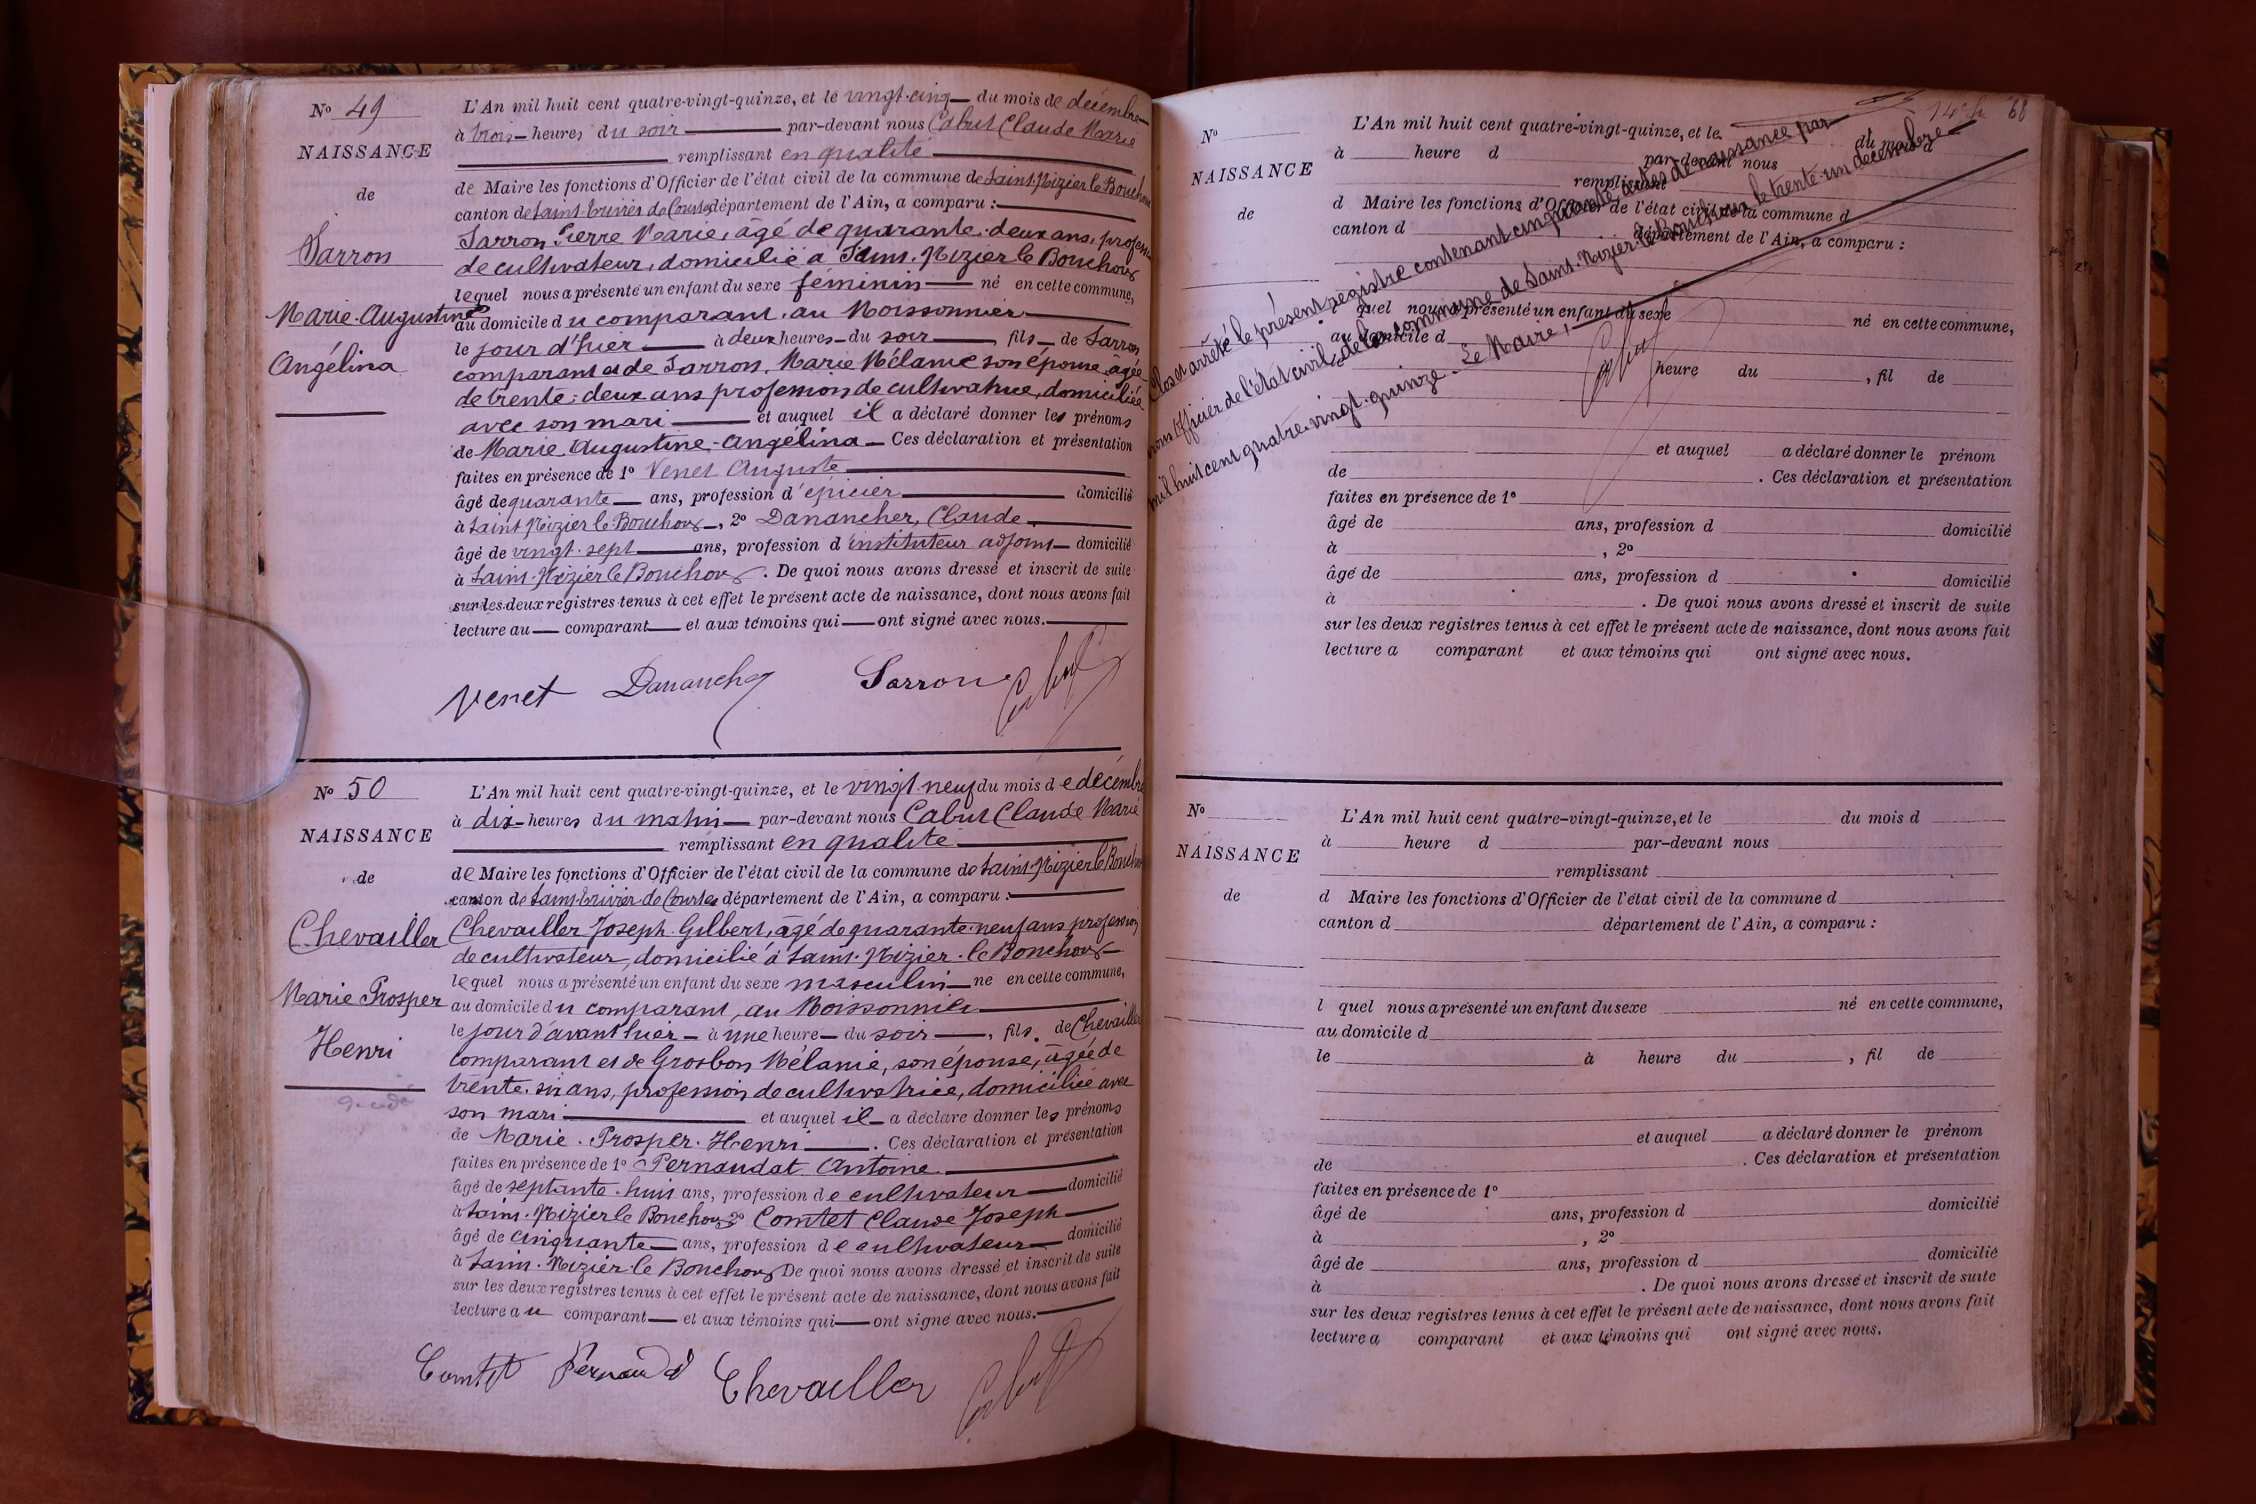 No 49
NAISSANCE
de
Sarron
Marie-Augustine
Angélina
L'An mil huit cent quatre-vingt-quinze, et le vingt-cinq du mois de décembre
à trois heures du soir par-devant nous Cabut Claude Marie
remplissant en qualité
de Maire les fonctions d'Officier de l'état civil de la commune de Saint-Nizier le Bouchoux
canton de Saint-Trivier de Courtes département de l'Ain, a comparu :
Sarron Pierre Marie, âgé de quarante-deux ans, profession
de cultivateur, domicilié à Saint-Nizier le Bouchoux
lequel nous a présenté un enfant du sexe féminin né en cette commune,
au domicile du comparant, au Moissonnier
le jour d'hier à deux heures du soir, fils de Sarron
comparant et de Sarron, Marie Mélanie son épouse âgée
de trente-deux ans profession de cultivatrice, domiciliée
avec son mari et auquel il a déclaré donner les prénoms
de Marie Augustine-Angélina Ces déclaration et présentation
faites en présence de 1o Venet Auguste
âgé de quarante ans, profession d'épicier domicilié
à Saint Nizier le Bouchoux, 2o Danancher, Claude
âgé de vingt-sept ans, profession d'instituteur adjoint domicilié
à Saint-Nizier le Bouchoux. De quoi nous avons dressé et inscrit de suite
sur les deux registres tenus à cet effet le présent acte de naissance, dont nous avons fait
lecture au comparant et aux témoins qui ont signé avec nous.
Venet Danancher Sarron Cabut
No 50
NAISSANCE
de
Chevailler
Marie Prosper
Henri
L'An mil huit cent quatre-vingt-quinze, et le vingt-neuf du mois de décembre
à dix heures du matin par-devant nous Cabut Claude Marie
remplissant en qualité
de Maire les fonctions d'Officier de l'état civil de la commune de Saint-Nizier le Bouchoux
canton de Saint-Trivier de Courtes département de l'Ain, a comparu :
Chevailler Joseph Gilbert, âgé de quarante-neuf ans profession
de cultivateur, domicilié à Saint-Nizier-le Bouchoux
lequel nous a présenté un enfant du sexe masculin né en cette commune,
au domicile du comparant, au Moissonnier
le jour d'avant hier à une heure du soir, fils de Chevailler
comparant et de Grosbon Mélanie, son épouse, âgée de
trente-six ans, profession de cultivatrice, domiciliée avec
son mari et auquel il a déclaré donner les prénoms
de Marie-Prosper-Henri. Ces déclaration et présentation
faites en présence de 1o Pernaudat Antoine
âgé de septante-huit ans, profession de cultivateur domicilié
à Saint-Nizier le Bouchoux 2o Comtet Claude Joseph
âgé de cinquante ans, profession de cultivateur domicilié
à Saint-Nizier-le Bouchoux De quoi nous avons dressé et inscrit de suite
sur les deux registres tenus à cet effet le présent acte de naissance, dont nous avons fait
lecture au comparant et aux témoins qui ont signé avec nous.
Comtet Pernaudat Chevailler Cabut
68
No
NAISSANCE
de
L'An mil huit cent quatre-vingt-quinze, et le du mois d
à heure d par-devant nous
remplissant
d Maire les fonctions d'Officier de l'état civil de la commune d
canton d département de l'Ain, a comparu :
l quel nous a présenté un enfant du sexe né en cette commune,
au domicile d
heure du , fil de
et auquel a déclaré donner le prénom
de . Ces déclaration et présentation
faites en présence de 1o
âgé de ans, profession d domicilié
à , 2o
âgé de ans, profession d domicilié
à . De quoi nous avons dressé et inscrit de suite
sur les deux registres tenus à cet effet le présent acte de naissance, dont nous avons fait
lecture a comparant et aux témoins qui ont signé avec nous.
Clos et arrêté le présent registre contenant cinquante actes de naissance par
nous Officier de l'état civil de la commune de Saint-Nizier-le-Bouchoux le trente-un décembre
mil huit cent quatre-vingt-quinze. Le Maire,
Cabut
No
NAISSANCE
de
L'An mil huit cent quatre-vingt-quinze, et le du mois d
à heure d par-devant nous
remplissant
d Maire les fonctions d'Officier de l'état civil de la commune d
canton d département de l'Ain, a comparu :
l quel nous a présenté un enfant du sexe né en cette commune,
au domicile d
le à heure du , fil de
et auquel a déclaré donner le prénom
de . Ces déclaration et présentation
faites en présence de 1o
âgé de ans, profession d domicilié
à , 2o
âgé de ans, profession d domicilié
à . De quoi nous avons dressé et inscrit de suite
sur les deux registres tenus à cet effet le présent acte de naissance, dont nous avons fait
lecture a comparant et aux témoins qui ont signé avec nous.